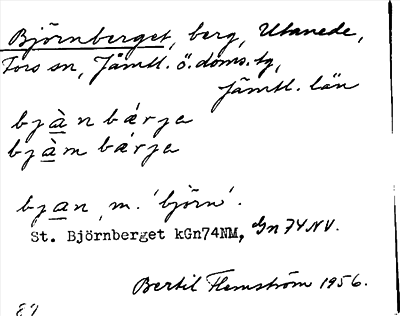 Björnberget, berg, Utanede,
Fors sn, Jämtl. ö. doms. tg,
Jämtl. län
bjàn bærje
bjàm bærje
bjan, m. 'björn'.
St. Björnberget kGn74NM, Gn 74 NV.
Bertil Flemström 1956.